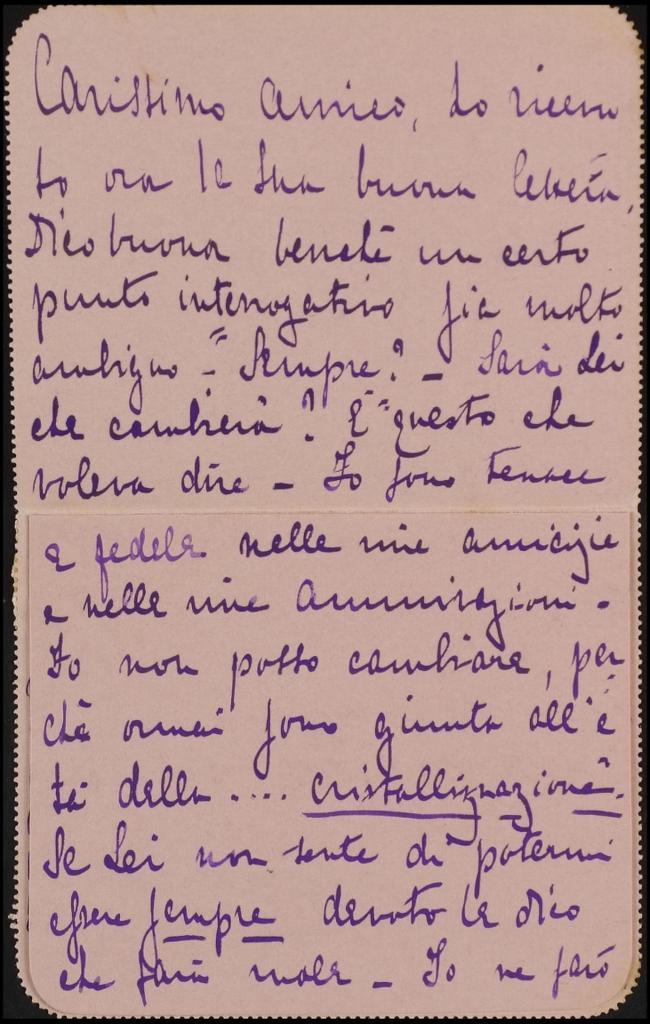 Carissimo Amico, ho ricevu
to ora la sua buona lettera,
Dico buona benchè un certo
punto interrogativo sia molto
ambiguo - "Sempre? - Sarà Lei
che cambierà? E" questo che
voleva dire - Io sono tenace
e fedele nelle mie amicizie
e nelle mie ammirazioni -
Io non posso cambiare, per
chè ormai sono giunta all'e
tà della .... cristallizzazione.
Se Lei non sente di potermi
essere sempre devoto Le dico
che farà male - Io ne farò